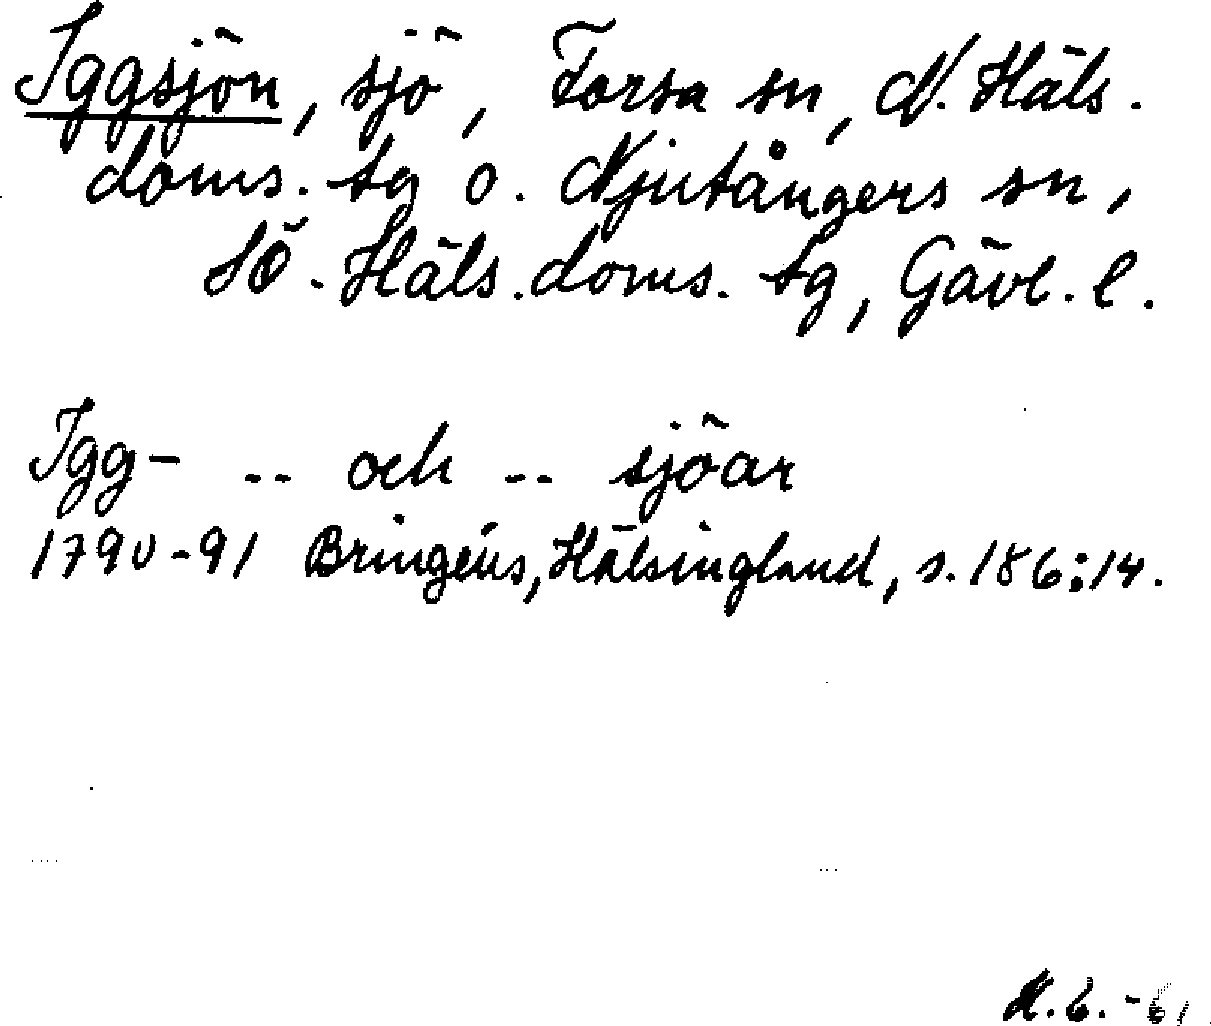 Iggsjön, sjö, Forsa sn, N. Häls.
doms. tg o. Njutångers sn,
SÖ. Häls. doms. tg, Gävl. l.
Igg- -- och -- sjöar
1790-91 Bringéus, Hälsingland, s. 186:14.